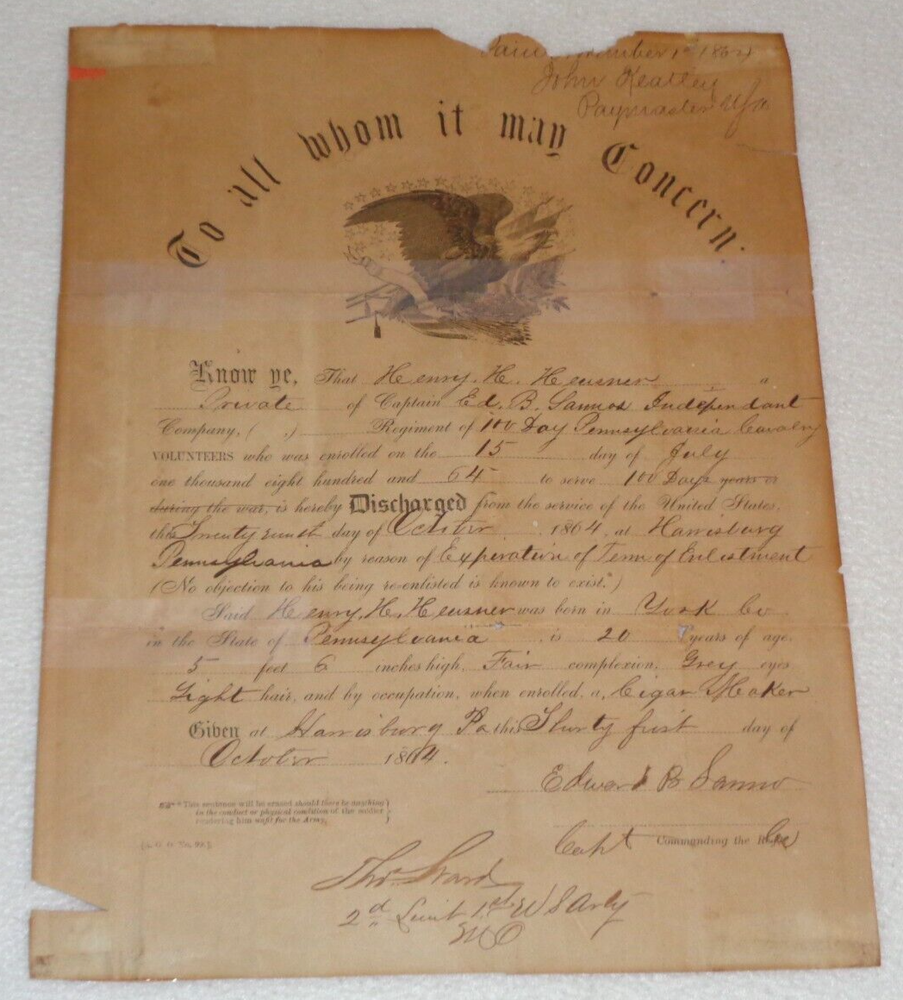 November 1st 1864
John Keatley
Paymaster USA
To all whom it may Concern:
Know ye, That Henry. H. Heusner a
Private of Captain Ed. B. Sannos Independant
Company, ( ,) Regiment of 100 Day Pennsylvania Cavalry
VOLUNTEERS who was enrolled on the 15 day of July
one thousand eight hundred and 64 to serve 100 Days years or
during the war, is hereby Discharged from the service of the United States,
this day of October 1864, at Harrisburg
Pennsylvania by reason of Experation of Term of Enlistment
(No objection to his being re-enlisted is known to exist.*)
Said Henry. H. Heusner was born in York Co
in the State of Pennsylvania is 20 years of age,
5 feet 6 inches high, Fair complexion, Grey eyes,
Light hair, and by occupation, when enrolled, a Cigar Maker
Given at Harrisburg Pa this Thirty first day of
October 1864.
Edward B Sanno
*This sentence will be erased should there be anything
in the conduct or physical condition of the soldier
rendering him unfit for the Army.
Capt Commanding the Co
Thos. Ward
2d Lieut 1st U S Arty
M O